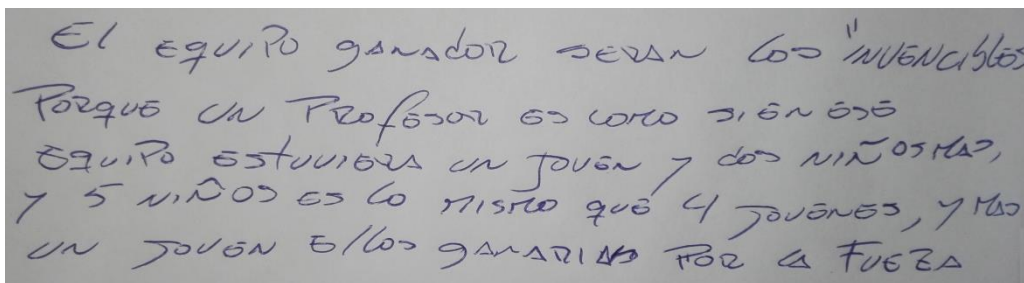 El EQUIPO gANAdOR SERAN LOS "INVENCIbLES
PORQUE UN PROfESOR ES COMO SI EN ESE
EQUIPO ESTUVIERA UN JOVEN Y dOS NIÑOS MAS,
Y 5 NIÑOS ES LO MISMO QUE 4 JOVENES, Y MAS
UN JOVEN EllOS gANARIAN POR LA FUEZA